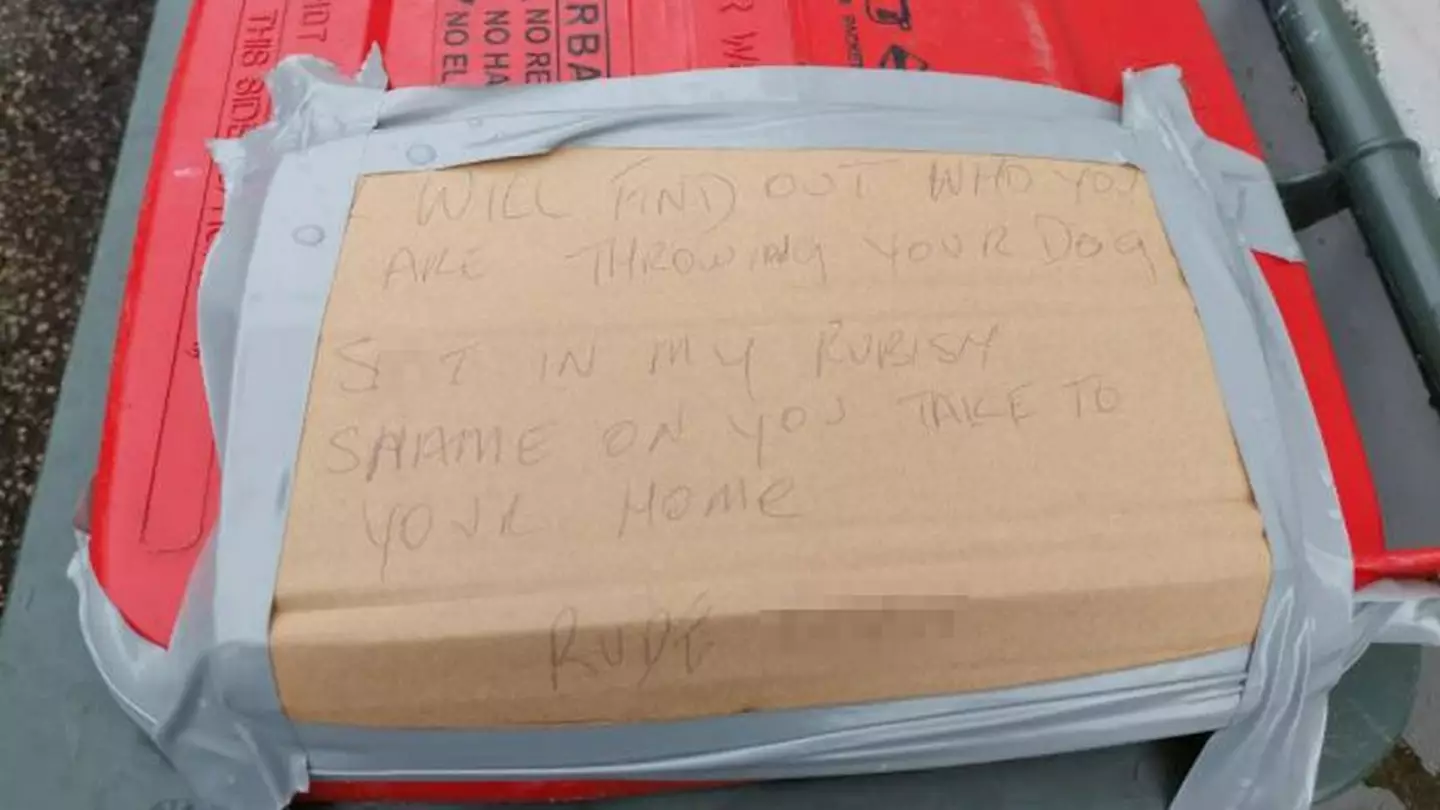 THIS SIDE
NO EL
NO HA
NO RE
RBA
WILL FIND OUT WHO YOU
ARE THROWING YOUR DOG
S T IN MY RUBISH
SHAME ON YOU TAKE TO
YOUR HOME
RUDE